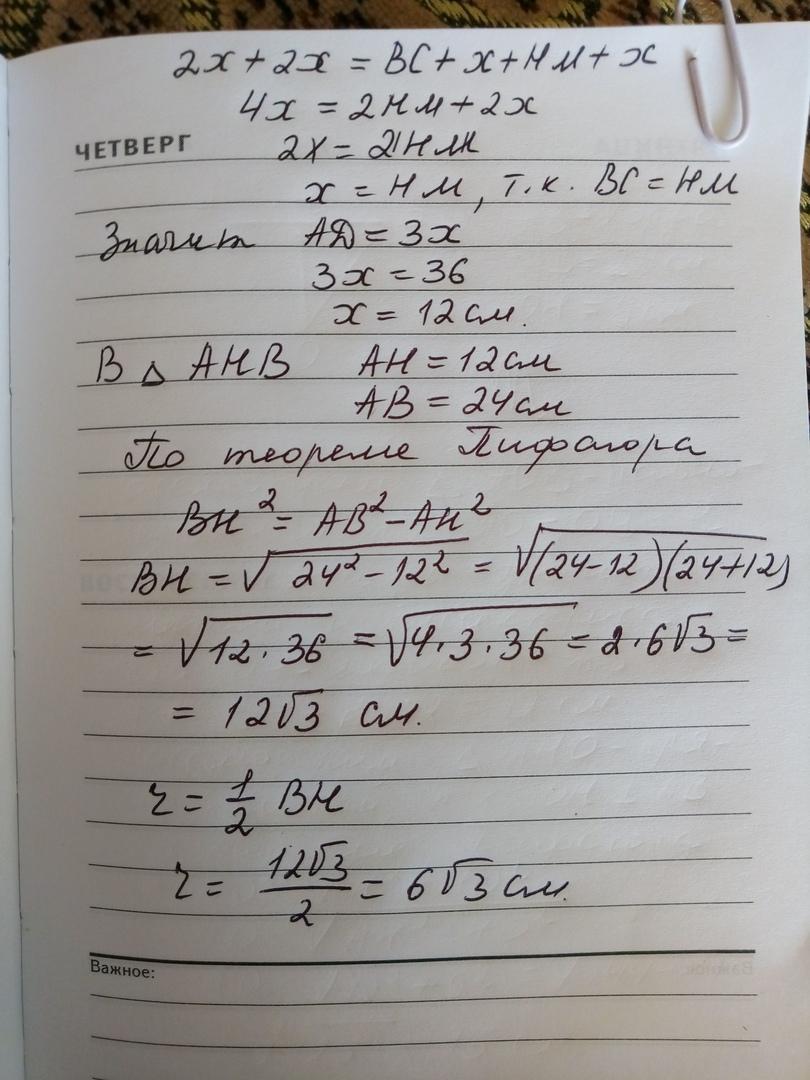 2x + 2x = BC + x + HM + x
4x = 2HM + 2x
ЧЕТВЕРГ
2x = 2HM
x = HM, т.к. BC = HM
Значит AD = 3x
3x = 36
x = 12 см.
В △ AHB AH = 12 см
AB = 24 см
По теореме Пифагора
BH² = AB² - AH²
BH = √24² - 12² = √(24-12)(24+12)
= √12·36 = √4·3·36 = 2·6√3 =
= 12√3 см.
r = 1/2 BH
r = 12√3/2 = 6√3 см.
Важное: